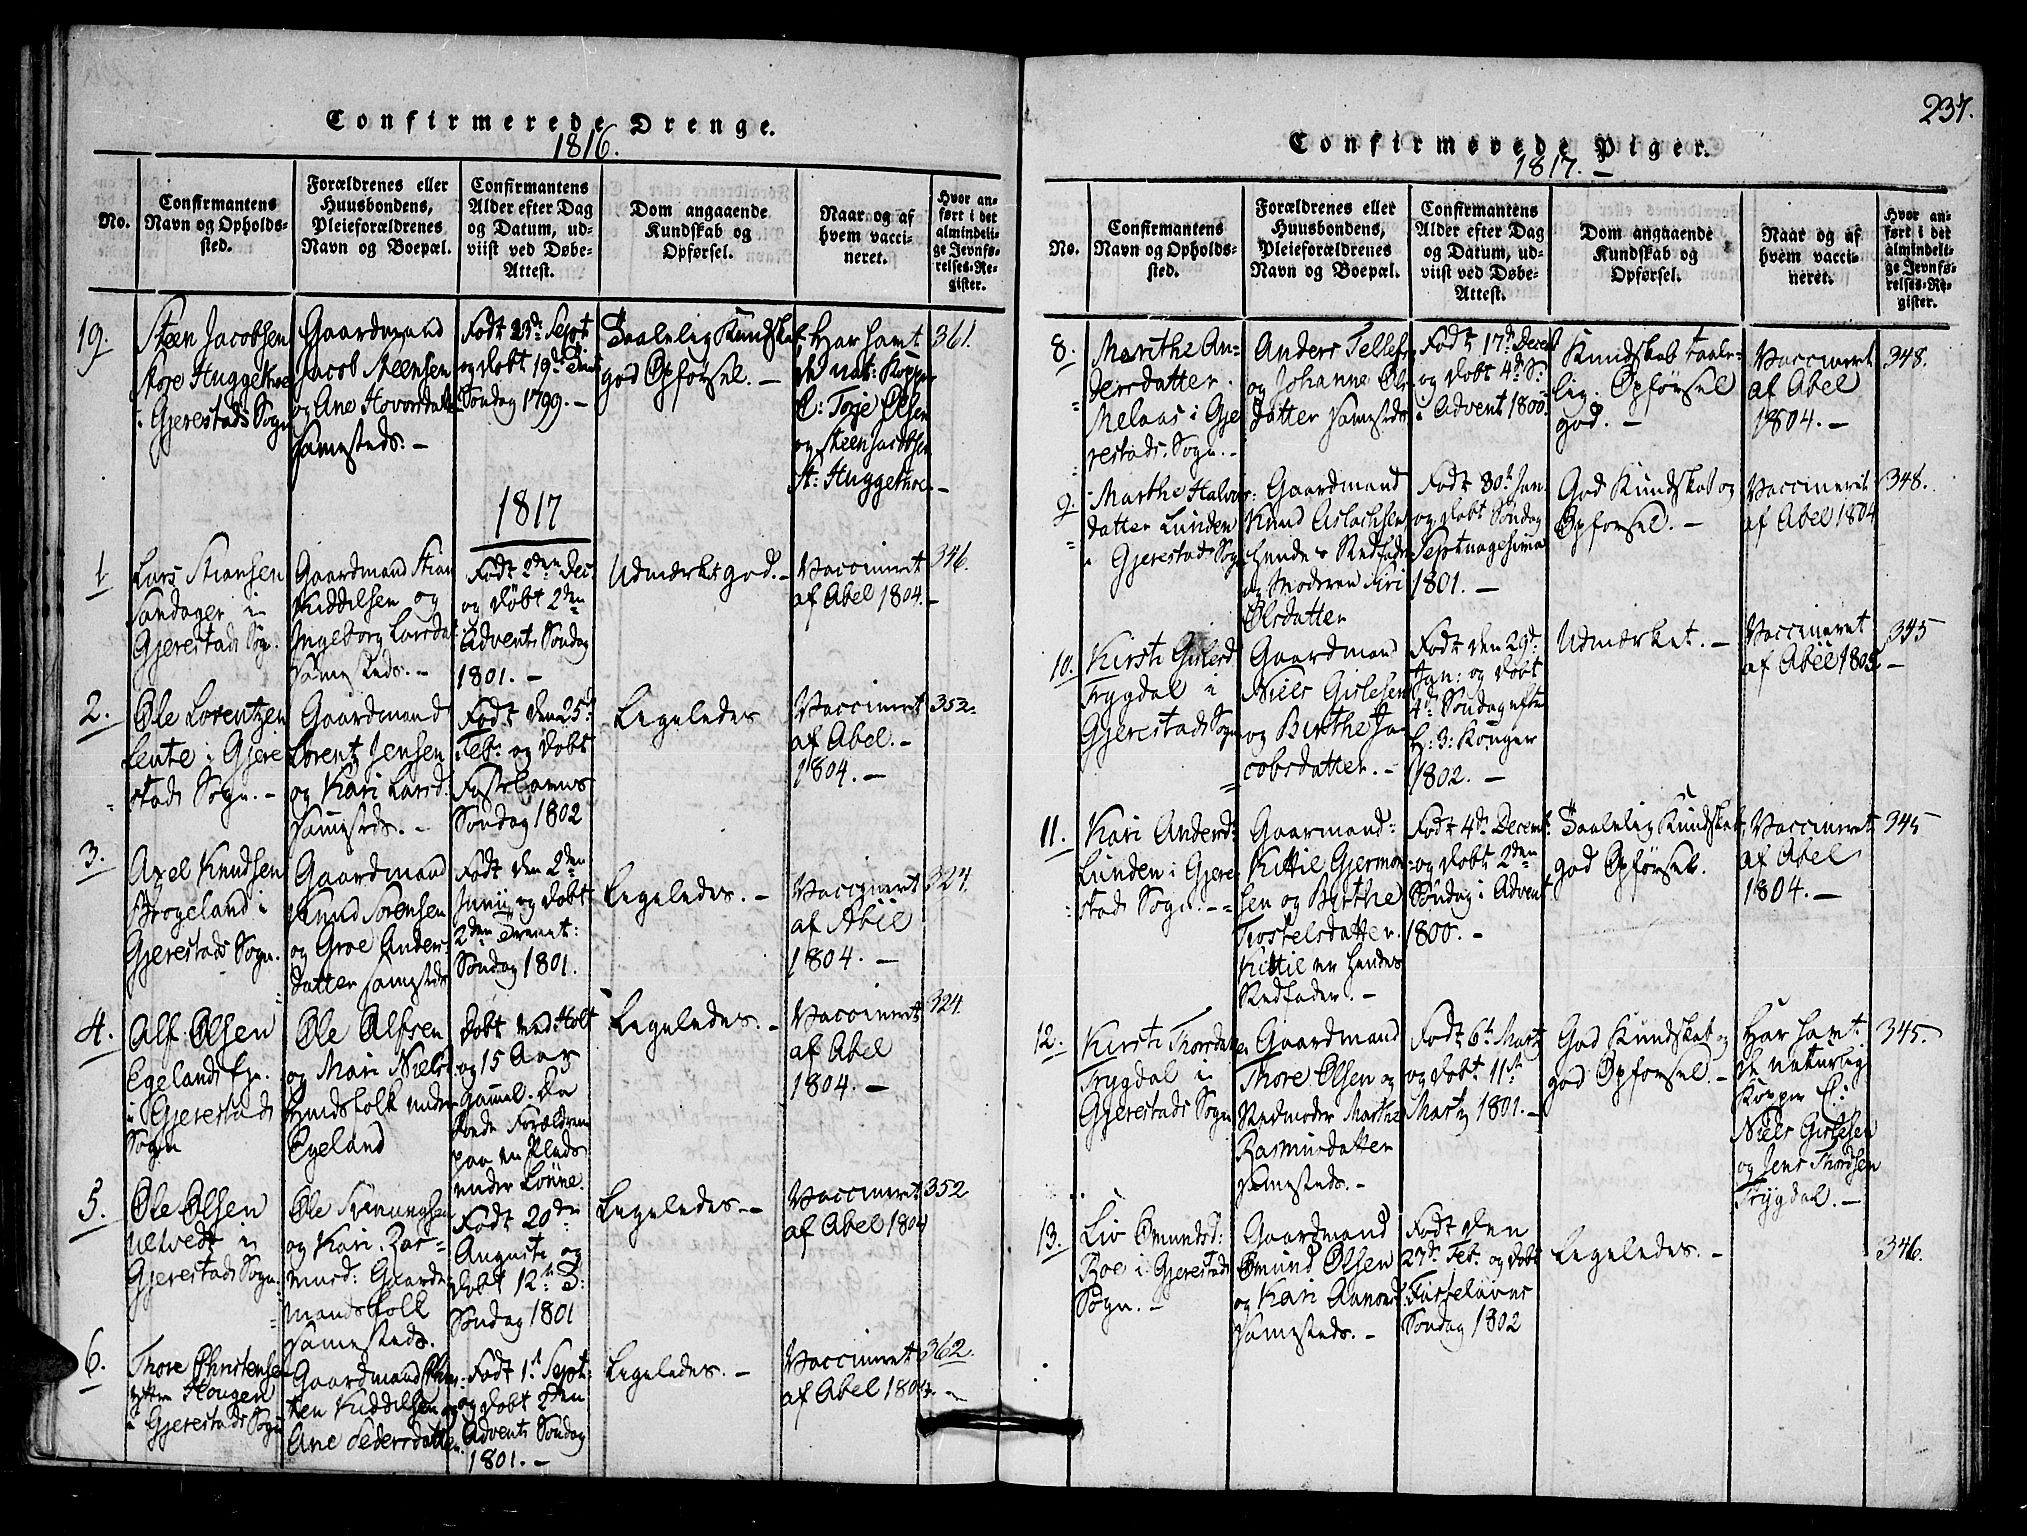 Confirmerede Drenge.
1816.
No.
Confirmantens
Navn og Opholds-
sted.
Forældrenes eller
Huusbondens,
Pleieforældrenes
Navn og Boepæl.
Confirmantens
Alder efter Dag
og Datum, ud-
viist ved Døbe-
Attest.
Dom angaaende
Kundskab og
Opførsel.
Naar og af
hvem vacci-
neret.
Hvor an-
ført i det
almindeli-
ge Jevnfø-
relses-Re-
gister.
19.
Steen Jacobsen
Store Huggethoe
i Gjerestads Sogn
Gaardmand
Jacob Steensen
og Ane Hovorsdatt
samesteds. –
Født 23de Sept
og døbt 19de Trinit
Søndag 1799. –
Taalelig Kundskab
god Opførsel. –
Har havt
de nat: Kopper
E: Torje Olsen
og Steen Jacobsen
St: Huggethoe. –
361.
1817
1.
Lars Stiansen
Sandager in
Gjerestads Sogn.
Gaardmand Stian
Kiddilsen og
Ingeborg Larsdat:
samesteds. –
Født 2den Dec.
og døbt 2den
Advents Søndag
1801. –
Udmærket god. –
Vaccineret
af Abel 1804. –
346.
2.
Ole Lorentzen
Lente i Gjere
stads Sogn. –
Gaardmand
Lorentz Jensen
og Kari Larsd.
samesteds. –
Født den 25de
Feb: og døbt
Fastelavns
Søndag 1802
Ligeledes
Vaccineret
af Abel. –
1804. –
352.
3.
Axel Knudsen
Brogeland i
Gjerestads Sogn.
Gaardmand
Knud Sørensen
og Groe Anders
datter samesteds
Født den 2den
Junii og døbt
2den Trinit:
Søndag 1801.
Ligeledes. –
Vaccineret
af Abel
1804. –
324.
4.
Alf Olsen
Egelands Eje.
i Gjerestads
Sogn
Ole Alfsen
og Mari Nielsd
Huusfolk under
Egeland
døbt ved Holt
og 15 Aar
gammel. da
boede Forældrene
paa en Plads
under Lønne.
Ligeledes. –
Vaccineret
af Abel
1804. –
324.
5.
Ole Olsen
Ulvedt in
Gjerestads Sogn
Ole Svenungsen
og Kari Ras-
musd: Gaard-
mandsfolk
samesteds.
Født 20de
Augusti og
døbt 12te T:
Søndag 1801
Ligeledes –
Vaccineret
af Abel 1804
352
6.
Thore Christensen
Haugen
i Gjerestads Sogn
Gaardmand Chris
ten Kiddilsen og
Ane Pedersdatter.
Født 1st Sept:
og døbt 2den
Advents Søndag
1801. –
Ligeledes. –
Vaccineret
af Abel 1804. –
362.
237.
Confirmerede Piger.
1817. –
No.
Confirmantens
Navn og Opholds-
sted.
Forældrenes eller
Huusbondens,
Pleieforældrenes
Navn og Boepæl.
Confirmantens
Alder efter Dag
og Datum, ud-
viist ved Døbe-
Attest.
Dom angaaende
Kundskab og
Opførsel.
Naar og af
hvem vacci-
neret.
Hvor an-
ført i det
almindeli-
ge Jevnfø-
relses-Re-
gister.
8.
Marithe An-
dersdatter.
Melaas i Gje
restads Sogn. –
Anders Tellefs
og Johanne Ols
datter samesteds
Født 17de Decemb
og døbt 4de S:
i Advent 1800.
Kundskab taale-
lig. Opførsel
god. –
Vaccineret
af Abel
1804. –
348.
9.
Marthe Halvors:
datter Lunden
i Gjerestads Sogn
Gaardmand
Knud Aslachsen
hendes Stedfader
og Moderen Siri
Olsdatter
Født 30te Jan.
og døbt Søndag
Septuagesima
1801. –
God Kundskab og
Opførsel. –
Vaccineret
af Abel 1804
348.
10.
Kirsti Gislesd
Trygdal i
Gjerestads Sogn
Gaardmand
Niels Gislesen
og Birthe Ja
cobsdatter. –
Født den 29de
Jan: og døbt
4de Søndag efter
H: 3: Konger
1802. –
Udmærket. –
Vaccineret
af Abel 1805 –
345
11.
Kari Andersd:
Lunden i Gjere
stads Sogn. –
Gaarmand:
Kittil Gjermon
sen og Birthe
Trostelsdatter.
Kittil er hendes
Stedfader. –
Født 4de Decemb:
og døbt 2den
Søndag i Advent
1800. –
Taalelig Kundskab,
god Opførsel.
Vaccineret
af Abel
1804. –
345
12.
Kirsti Thorsdatter
Trygdal i
Gjerestads Sogn
Gaardmand
Thore Olsen og
Stedmoder Marthe
Rasmusdatter
samesteds. –
Født 6te Martz
og døbt 11te
Martz 1801. –
God Kundskab og
god Opførsel. –
Har havt
de naturlig
Kopper E:
Niels Gislesen
og Jens Thordsen
Trygdal. –
345.
13.
Liv Omundsd:
Roe i Gjerestads
Sogn. –
Gaardmand
Omund Olsen
og Kari Aanonsd
samesteds. –
Født den
27de Feb: og døbt
Fastelavns
Søndag 1802
Ligeledes. –
346.